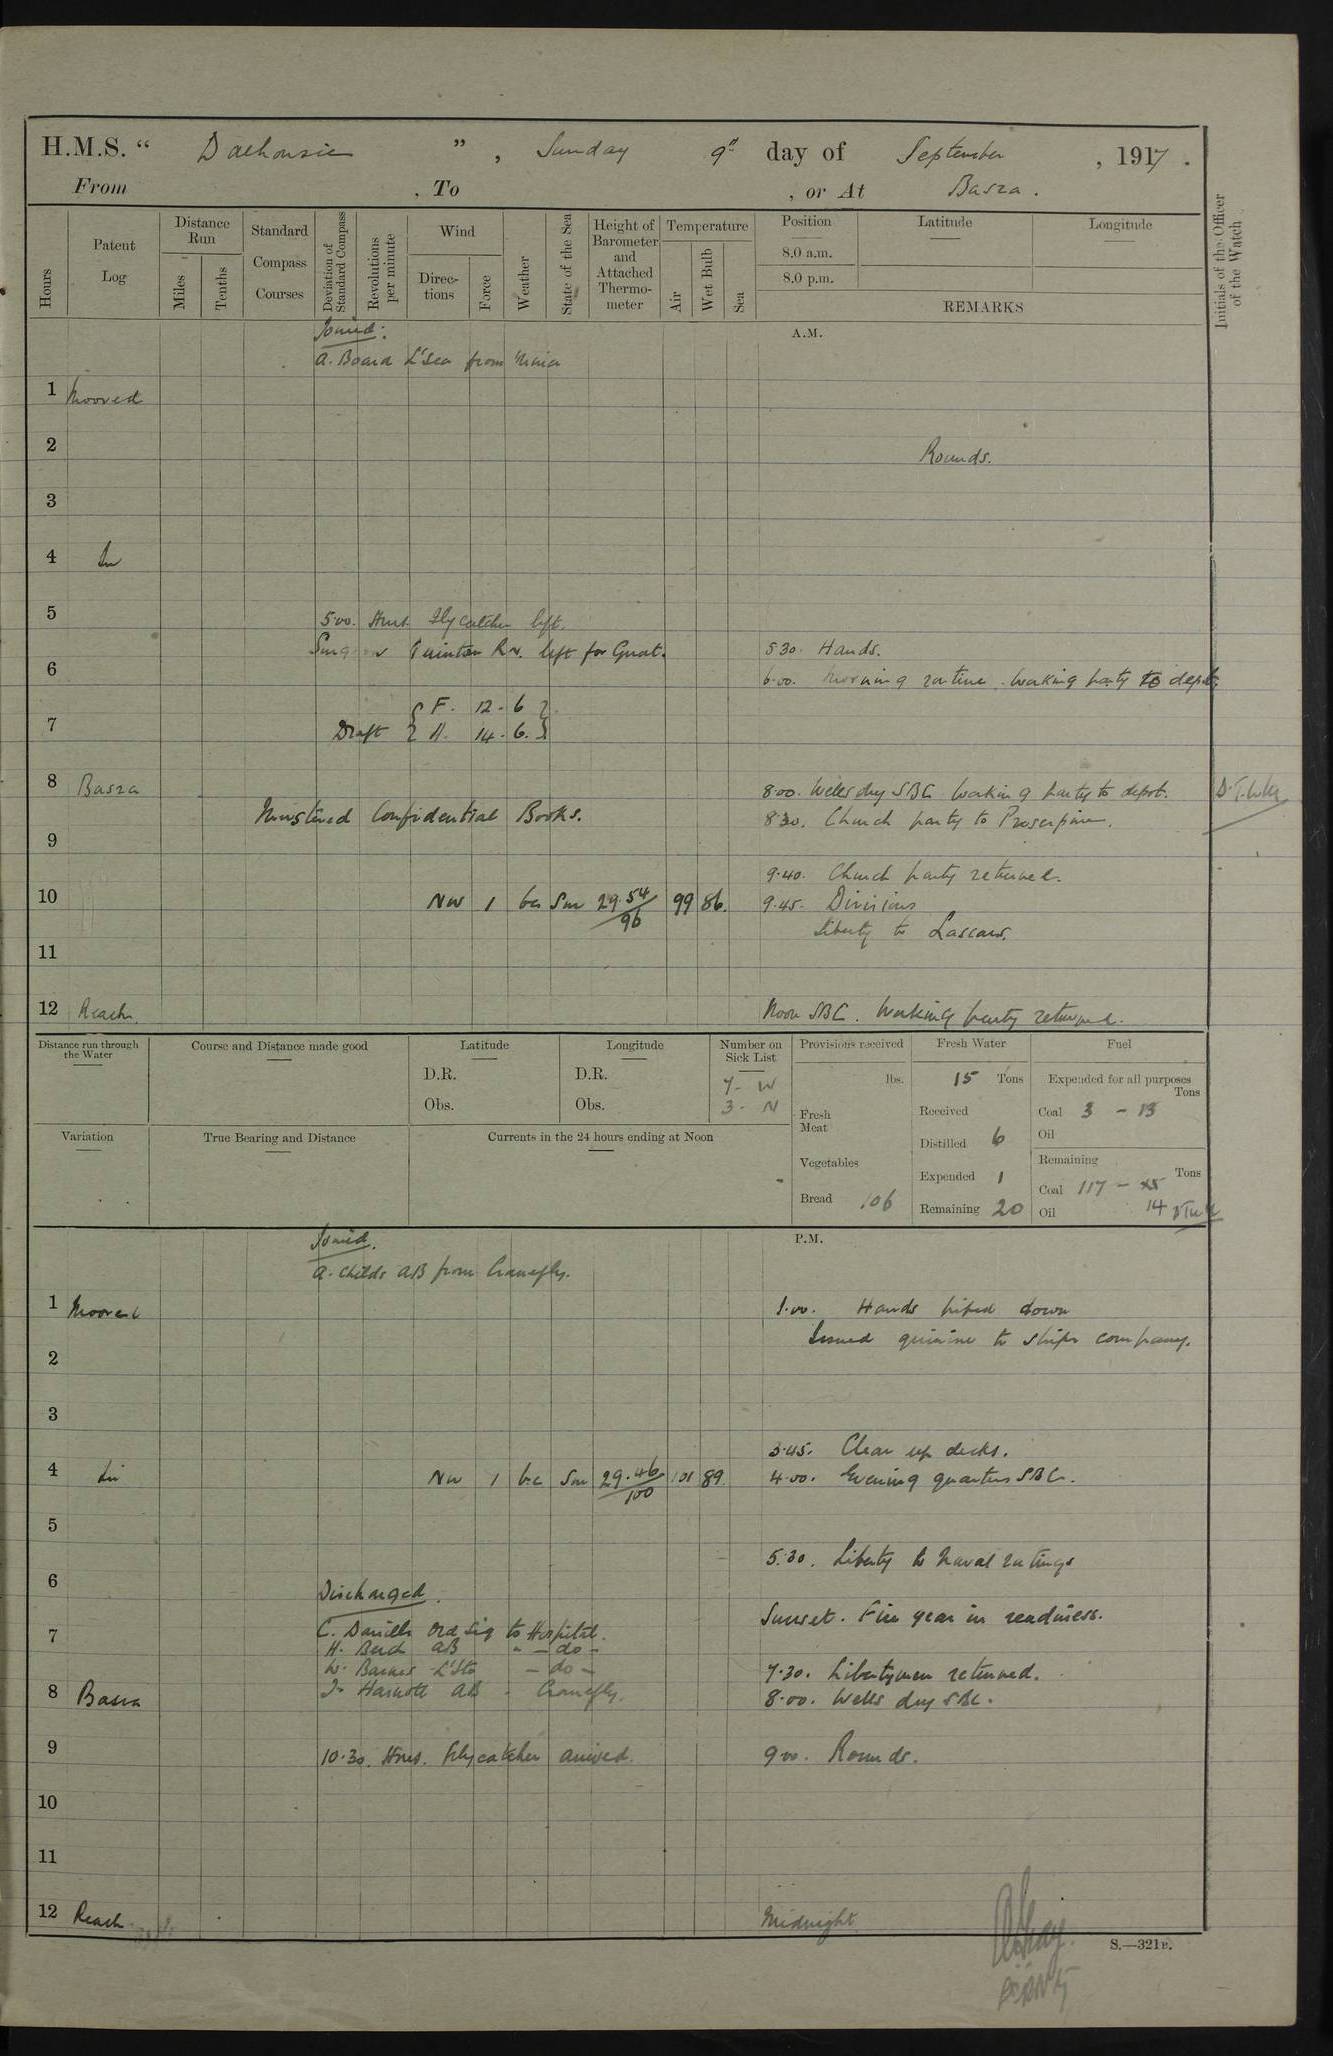 H.M.S. " Dalhousie ", Sunday 9th day of September, 1917.
From , To , or At Basra.
Hours
Patent Log
Distance Run
Miles
Tenths
Standard Compass Courses
Deviation of Standard Compass
Revolutions per minute
Wind
Directions
Force
Weather
State of the Sea
Height of Barometer and Attached Thermometer
Temperature
Air
Wet Bulb
Sea
Position
8.0 a.m.
8.0 p.m.
Latitude
Longitude
REMARKS
Initials of the Officer of the Watch
Joined: A.M.
A. Board L'Sea from
1 Moored
2 Rounds.
3
4 In
5 5.00. Hms. Flycatcher left.
Surgeon R.N. left for Gnat. 5.30. Hands.
6 6.00. Morning routine. Working party to depot.
{ F. 12 - 6 }
7 Draft { A. 14 - 6. }
8 Basra 8.00. Wells dry SBC Working party to depot.
Mustered Confidential Books. 8.30. Church party to Proserpine.
9
9.40. Church party returned.
10 NW 1 bc Sm 29.54/96 99 86. 9.45. Divisions
Liberty to Lascars.
11
12 Reach. Noon SBC. Working party returned.
Distance run through the Water
Course and Distance made good
Latitude
D.R.
Obs.
Longitude
D.R.
Obs.
Number on Sick List
7 - W
3 - N
Provisions received
lbs.
Fresh Meat
Vegetables
Bread 106
Fresh Water
15 Tons
Received
Distilled 6
Expended 1
Remaining 20
Fuel
Expended for all purposes
Tons
Coal 3 - 13
Oil
Remaining
Tons
Coal 117 -
Oil 14
Variation
True Bearing and Distance
Currents in the 24 hours ending at Noon
Joined. P.M.
A. Childs AB from Cranefly.
1 Moored 1.00. Hands piped down
Issued quinine to ships company.
2
3
3.45. Clear up decks.
4 In NW 1 bc Sm 29.46/100 101 89. 4.00. Evening quarters SBC.
5
5.30. Liberty to Naval ratings
6
Discharged.
Sunset. Fire gear in readiness.
7 C. Daniells Ord Sig to Hospital.
H. Bird AB " - do -
W. Barnes L'Sto - do - 7.30. Libertymen returned.
AB - Cranefly.
8 Basra 8.00. Wells dry SBC.
9 10.30. Hms. Flycatcher arrived. 9.00. Rounds.
10
11
12 Reach Midnight
S.—321B.